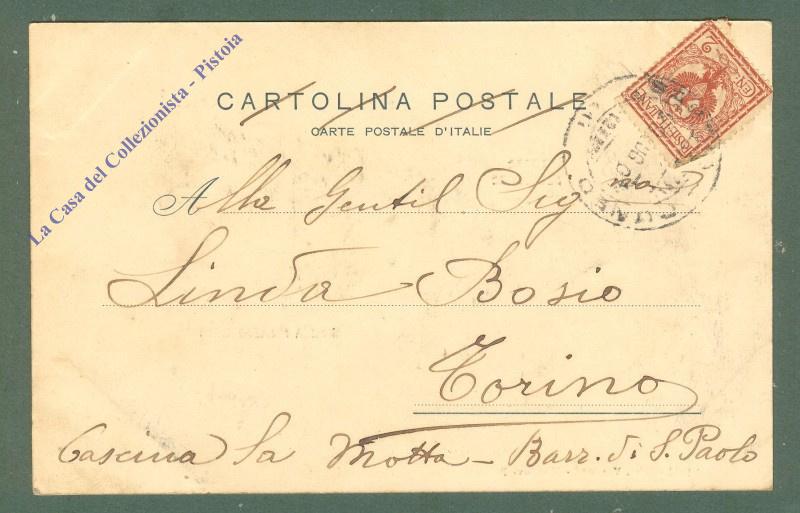 La Casa del Collezionista - Pistoia
CARTOLINA POSTALE
CARTE POSTALE D'ITALIE
CUNEO
Alla Gentil Sig
Linda Bosio
Torino
Cascina La Motta - Barr. di S. Paolo